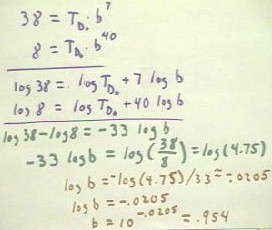 38 = T_D₀ · b⁷
8 = T_D₀ · b⁴⁰
log 38 = log T_D₀ + 7 log b
log 8 = log T_D₀ + 40 log b
log 38 - log 8 = -33 log b
-33 log b = log(38/8) = log(4.75)
log b = -log(4.75)/33 ≈ -.0205
log b = -.0205
b = 10^-.0205 = .954